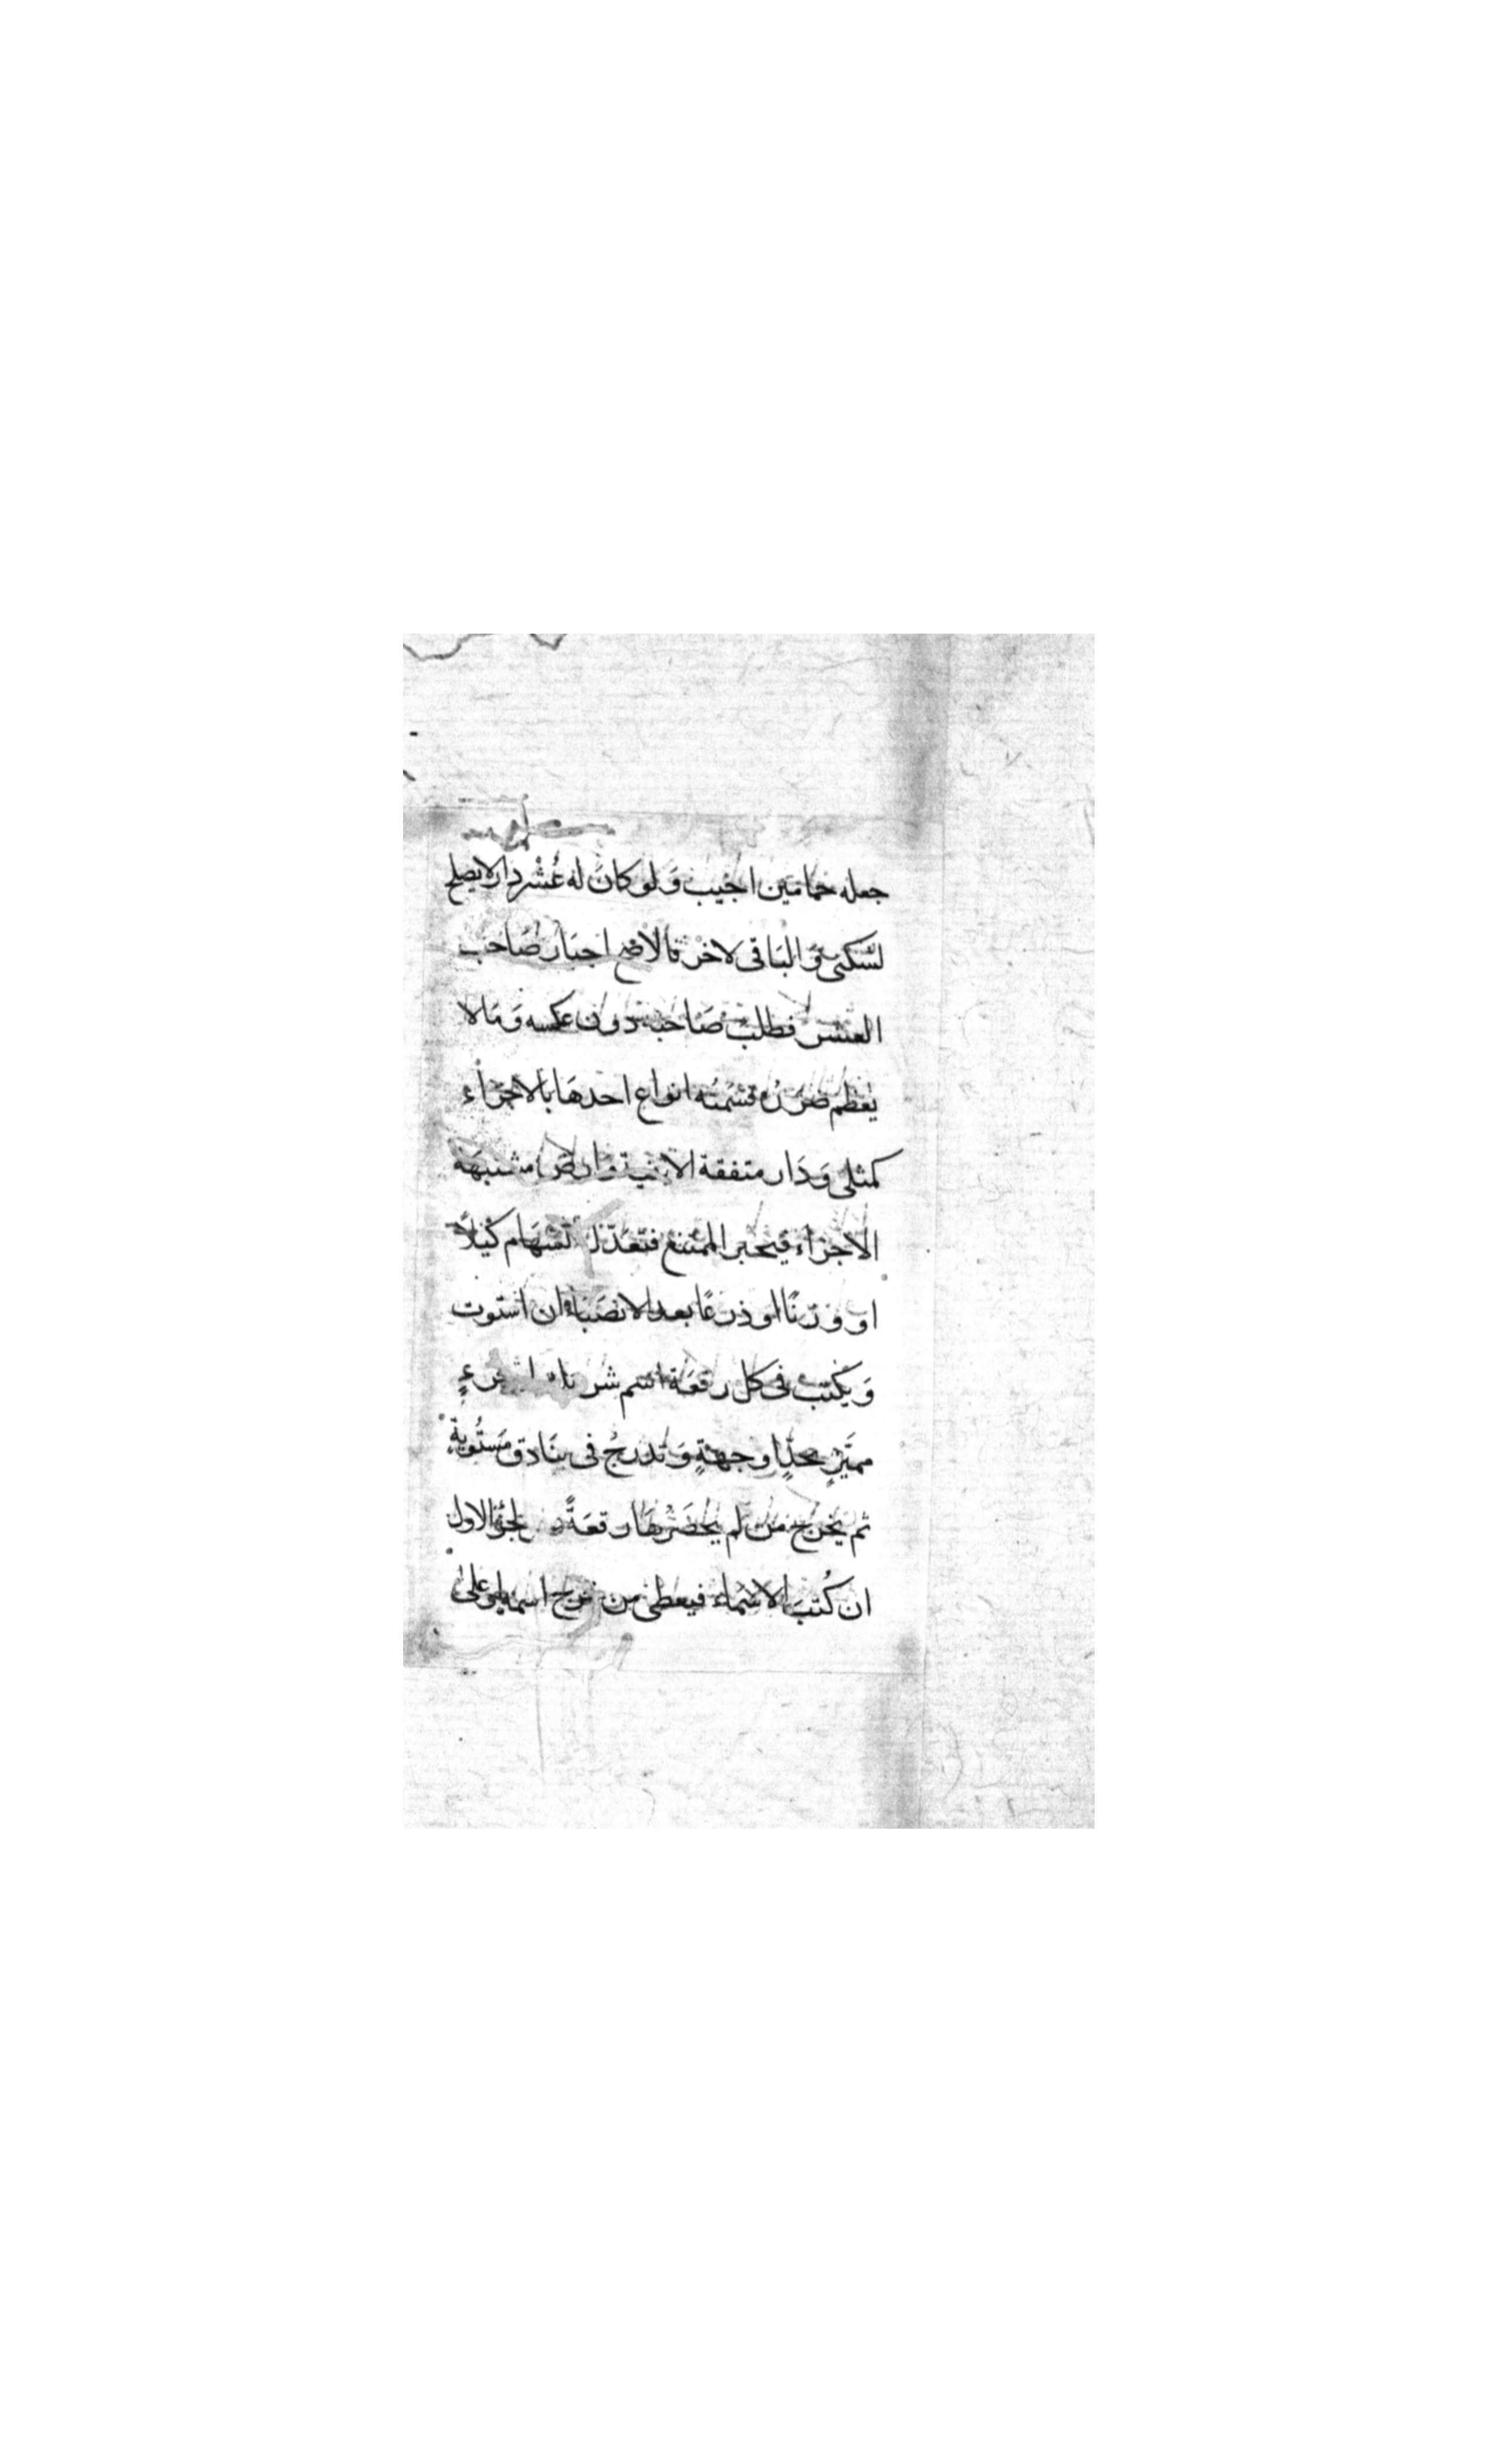 جعله حمامين اجيب وَلو كانَ له عُشْر دار لا يصلح
لسكنى وَالبَاقى لاخر فالاصح اجبار صَاحب
العشر بطلب صَاحبه دون عكسه وَمَالا
يعظم ضررُه قسْمتُه انواع احدهَا بالاجزاء
كمثلى وَدَار متفقة الابنية وارض مشتبهة
الاجزاء فيجبر الممتنع فتعَدّل السّهَام كيْلاً
او وزنًا او ذرعًا بعدد الانصَباء ان استوت
وَيكْتب فى كل رقعَة اسْم شريك او جزءٍ
مميَّزٍ بحدٍّ او جهةٍ وَتدرجُ فى بنَادق مسْتُويةٍ
ثم يخرج من لم يحْضَرْهَا رقعَةً الجزْء الاول
ان كُتبَ الاسْماء فيعطى من خرج اسمه او على